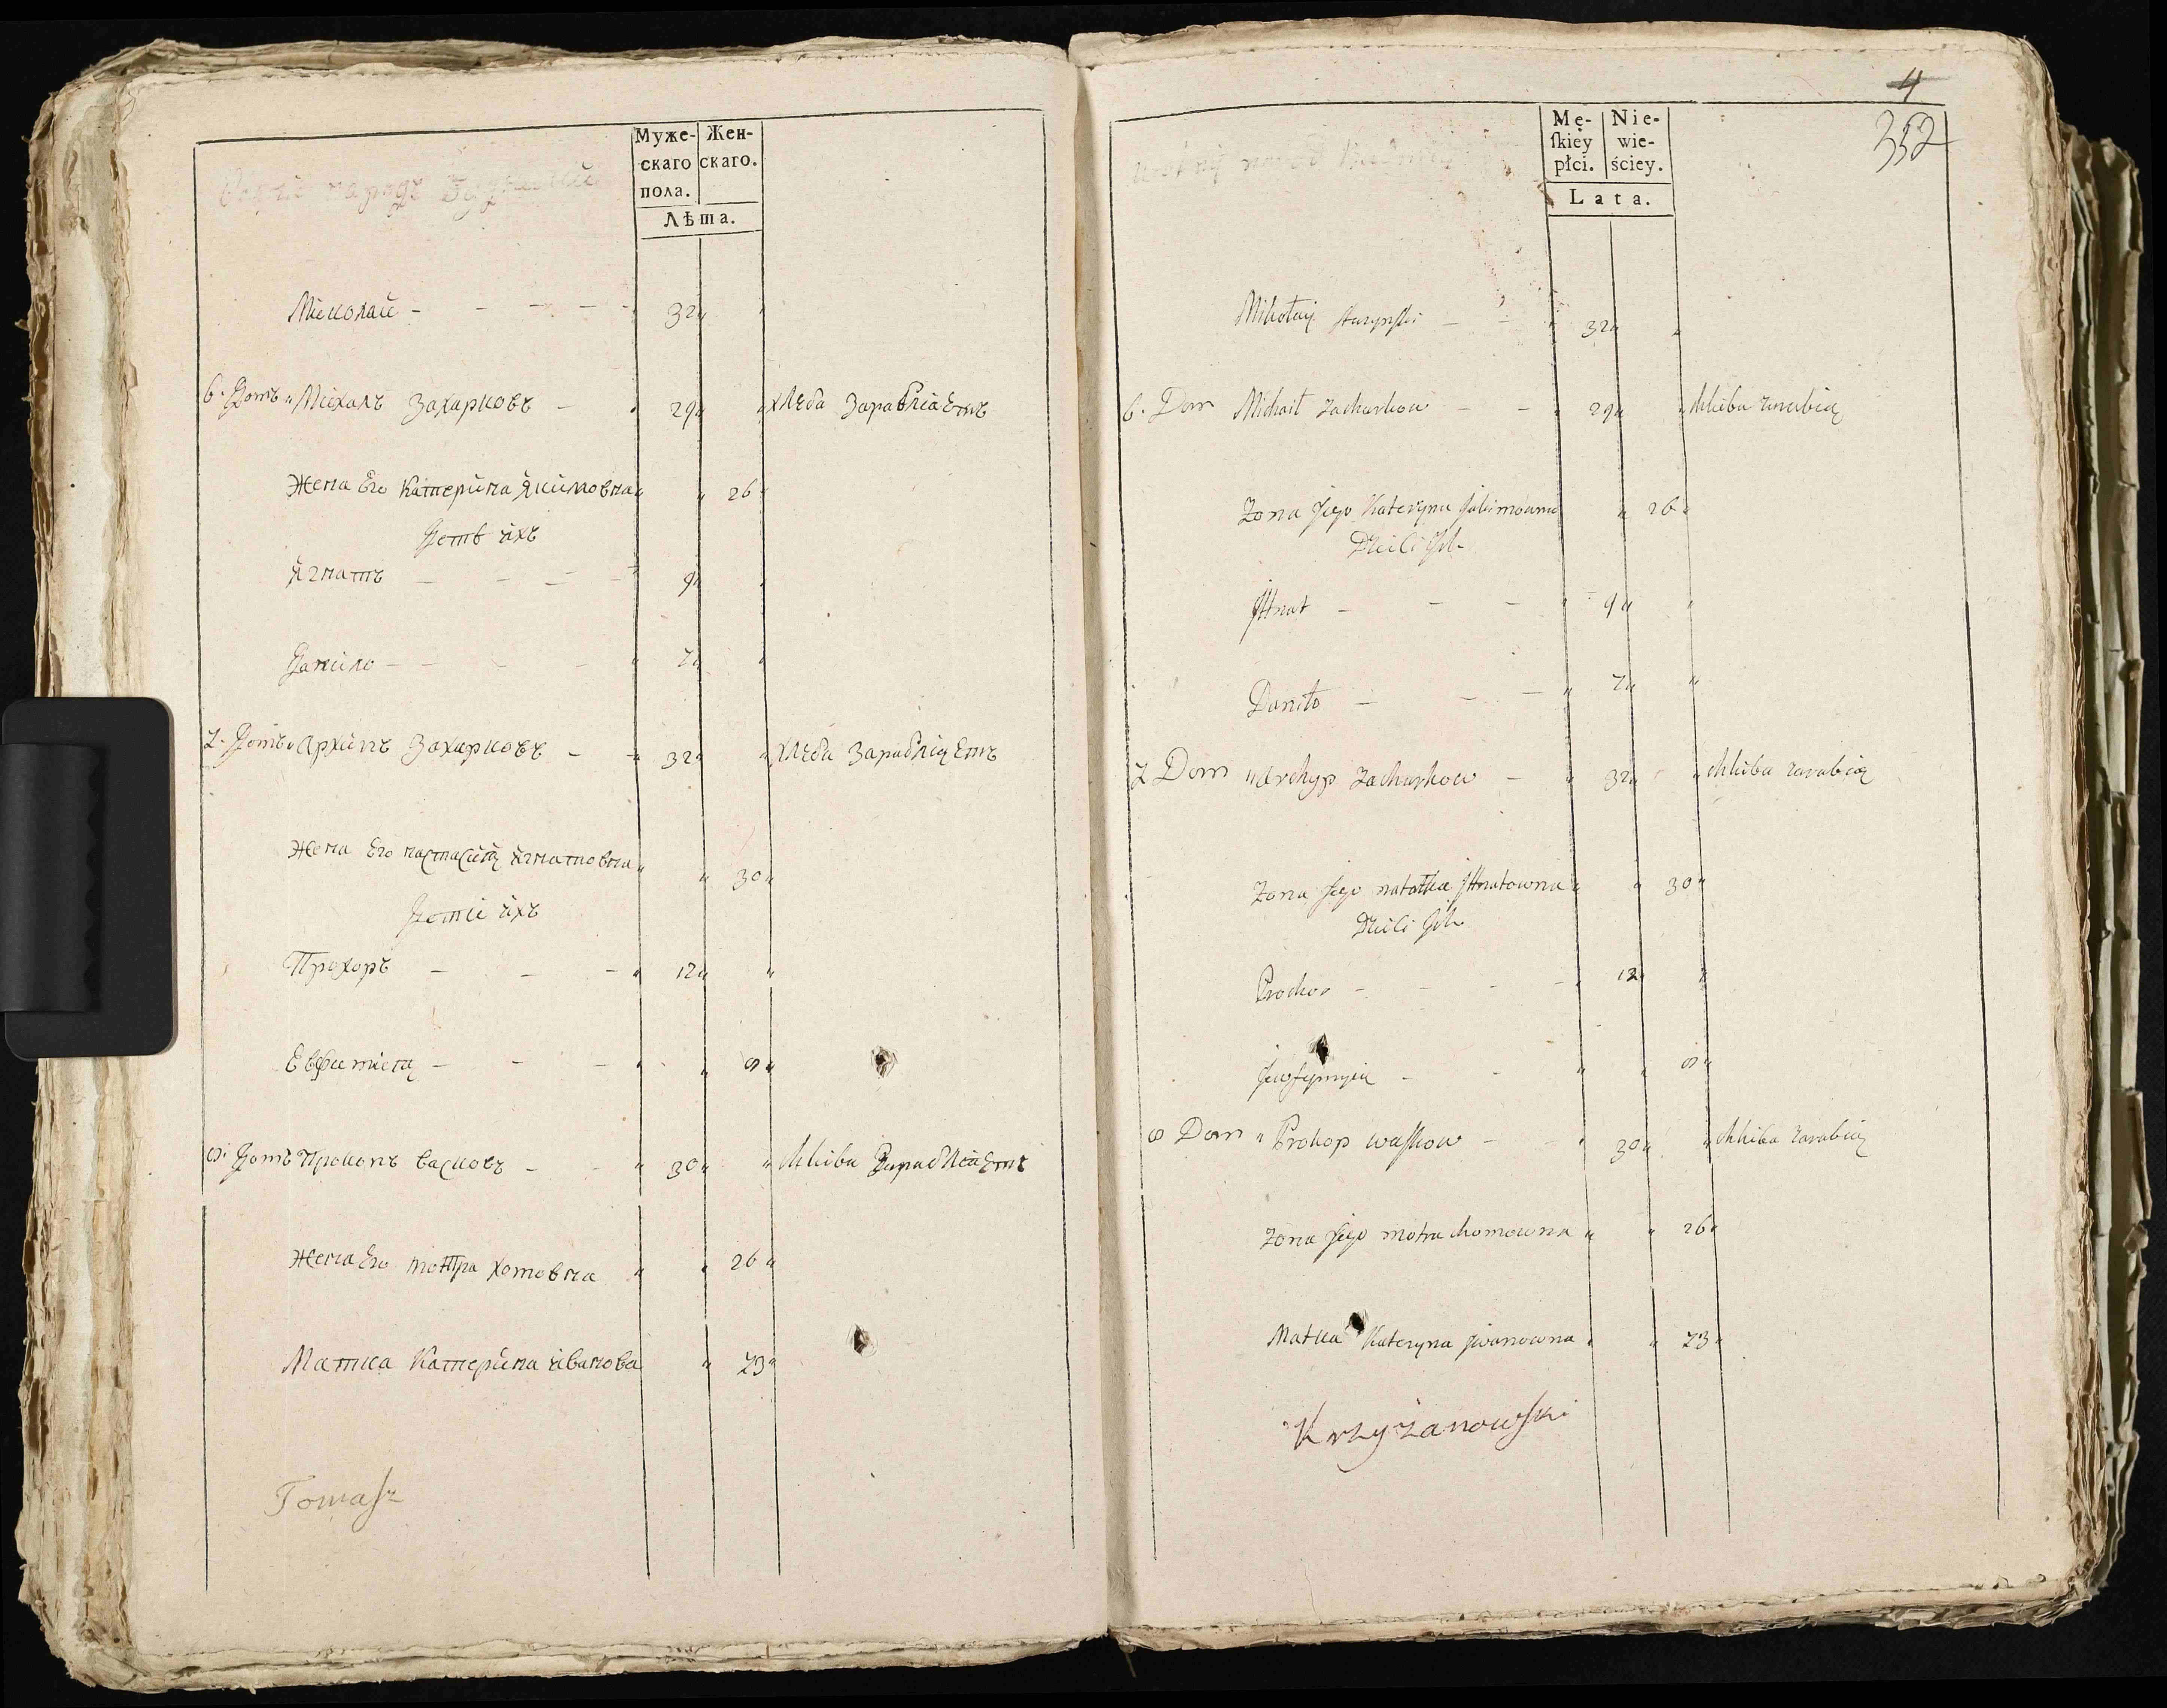 Муже- Жен-
скаго скаго.
пола.
Лѣта.
Миколай - - - - - 32
6. Домъ Михалъ Захарковъ - 29 хлеба Зараблiаетъ
Жена Его Катерина Якимовна 26
Дети ихъ
Игнатъ - - - - 9
Данило - - - - 7
7. Домъ Архипъ Захарковъ - - 32 хлеба Зараблiаетъ
Жена Его настасия игнатовна 30
Дети ихъ
Прохоръ - - - 12
Евфимия - - -
Домъ Прокопъ васковъ - - 30 chliba Зараблiаетъ
Жена Его мотра хомовна 26
Матка Катерина ивanова 73
Tomasz
4
352
Mę- Nie-
ſkiey wie-
płci. ściey.
Lata.
Mikołay - - 32
6. Dom Michaił Zacharkow - - 29 chliba zarabia
Zona Jego Kateryna Jakimowna 26
Dzieci Jch
JHnat - - - 9
Daniło - - - 7
7 Dom Archyp Zacharkow - 32 chliba zarabia
Zona Jego JHnatowna 30
Dzieci Jch
Prochor - - - - 12
Jewfymyia - -
8 Dom Prokop waſkow - - 30 chliba zarabia
Zona Jego motra chomowna 26
Matka Kateryna jwanowna 73
Krzyżanowſki